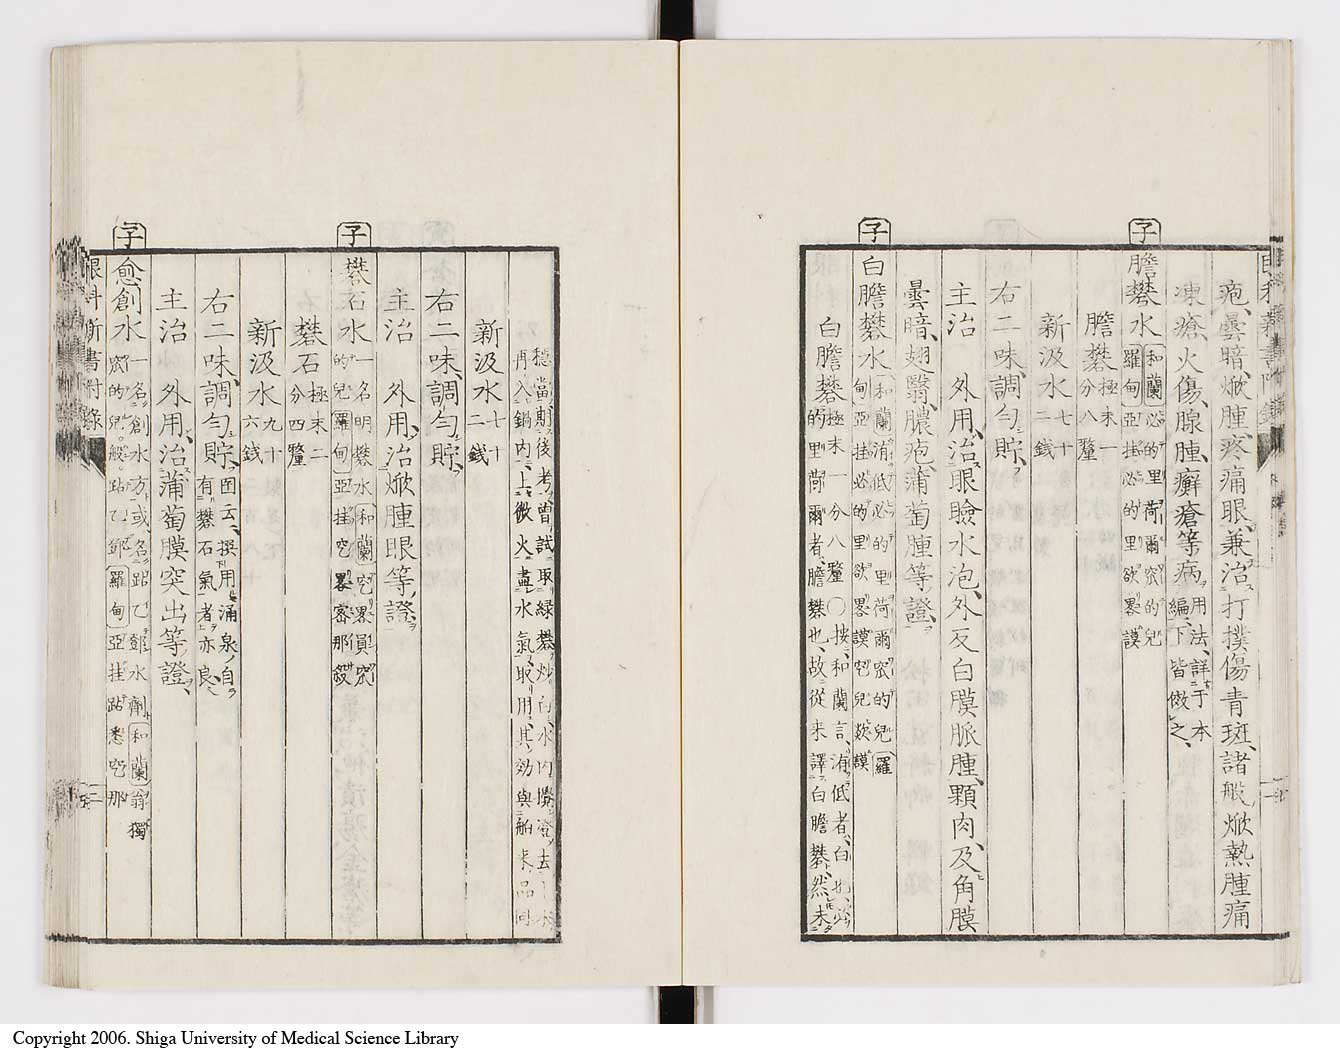 疱、曇暗、焮腫、疼痛眼、兼治打撲傷青斑、諸般焮熱腫痛
凍瘡、火傷、腺腫、癬瘡等病、用法、詳于本編、下皆倣之、
子
膽礬水 和蘭 必的里荷爾窊的兒 羅甸 亞挂必的里欲畧謨
膽礬 極末一分八釐
新汲水 七十二錢
右二味、調勻貯、
主治 外用、治眼瞼水泡、外反白膜脈腫、顆肉、及角膜
曇暗、翅翳、膿疱、蒲萄腫等證、
子
白膽礬水 和蘭 洧低必的里荷爾窊的兒 羅甸 亞挂必的里欲畧謨
白膽礬 極末一分八釐〇按、和蘭言、洧低者、白也、必的里荷爾者、膽礬也、故從來譯白膽礬、然未
穩當、期後考、曾試、取綠礬炒白、水內攪澄、去
再入鍋內、上微火、盡水氣、取用、其効與舶來品同
新汲水 七十二錢
右二味、調勻貯、
主治 外用、治焮腫眼等證、
子
礬石水 一名明礬水 和蘭 窊畧員窊的兒 羅甸 亞挂
礬石 極末二分四釐
新汲水 九十六錢
右二味、調勻貯、 囡云、撰用涌泉自有礬石氣者亦良、
主治 外用、治蒲萄膜突出等證、
子
愈創水 一名創水方、或名
眼科新書附錄
Copyright 2006. Shiga University of Medical Science Library